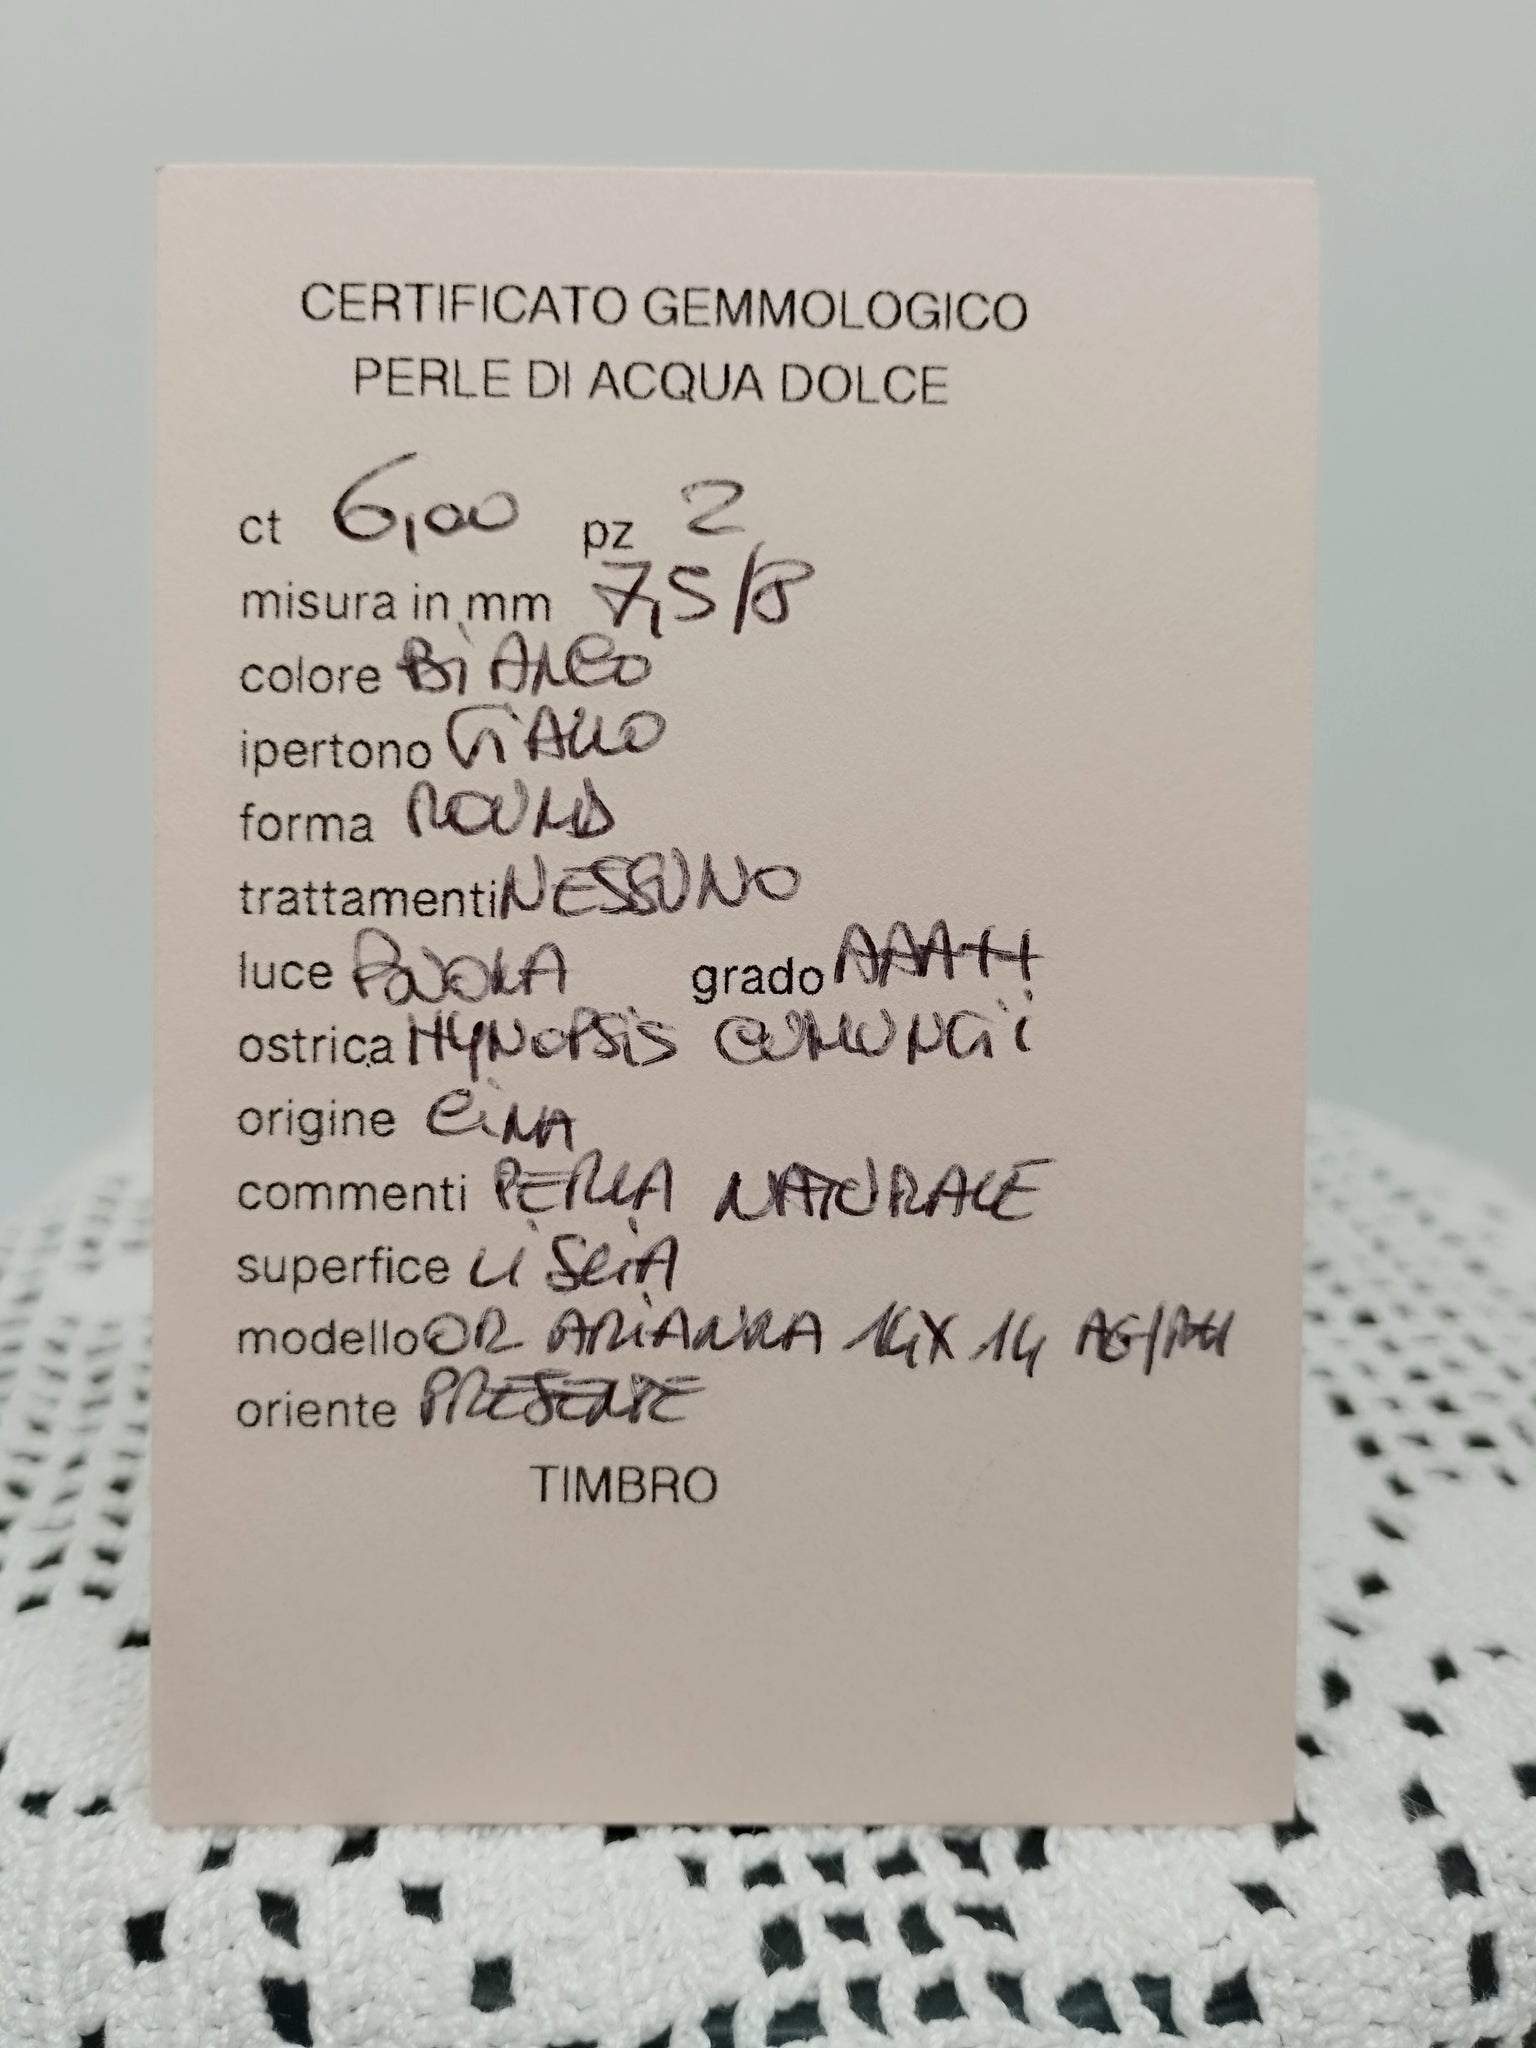 CERTIFICATO GEMMOLOGICO
PERLE DI ACQUA DOLCE
ct 6,00 pz 2
misura in mm 7,5/8
colore BiANCO
ipertono GiALLO
forma ROUND
trattamenti NESSUNO
luce BUONA grado AAA++
ostrica HYNOPSIS CUMUNGII
origine CiNA
commenti PERLA NATURALE
superfice LiSCiA
modello OR ARiANNA 14X14 AG/RH
oriente PRESENTE
TIMBRO